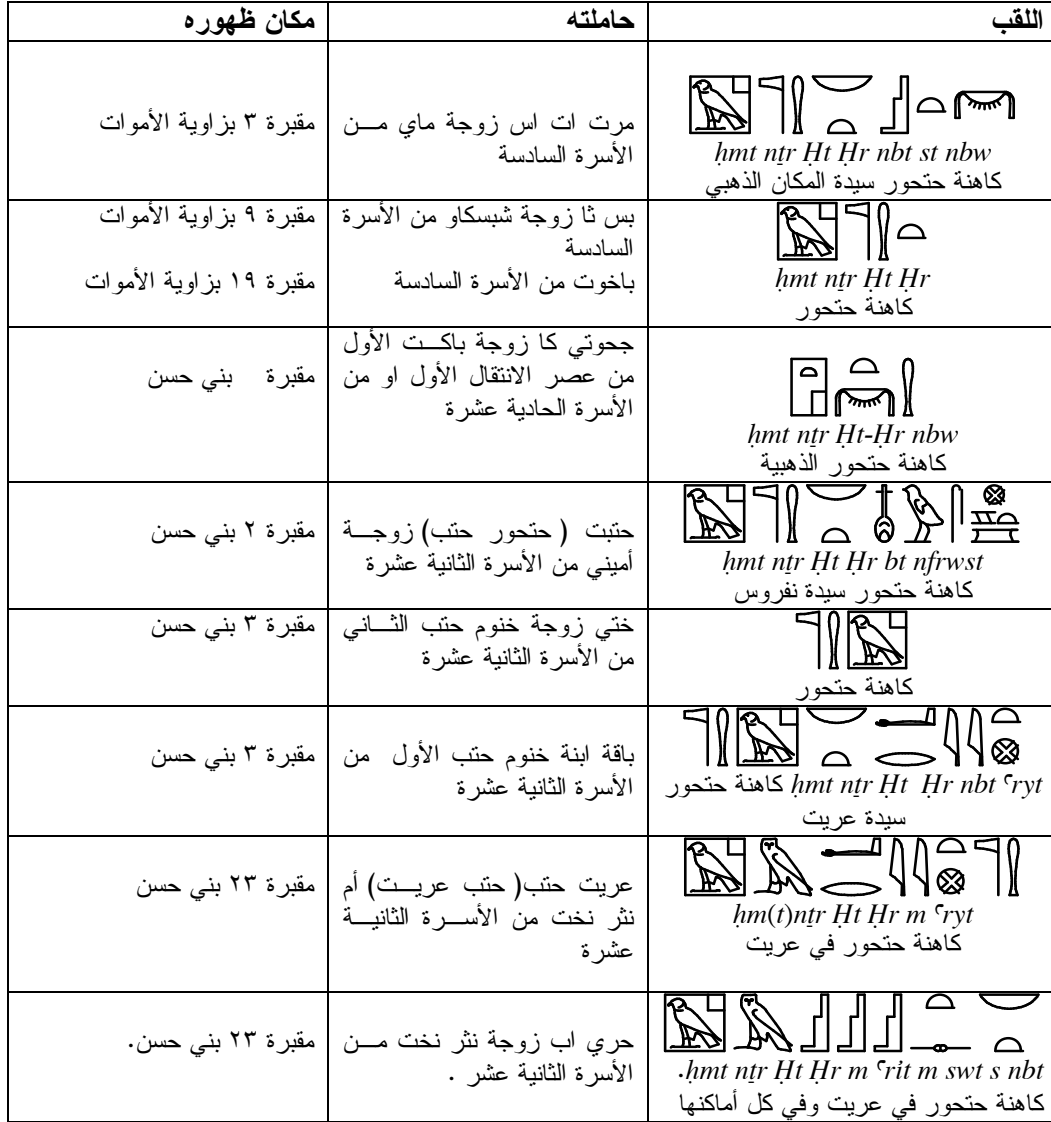 اللقب
حاملته
مكان ظهوره
ḥmt nṯr Ḥt Ḥr nbt st nbw
كاهنة حتحور سيدة المكان الذهبي
مرت ات اس زوجة ماي من
الأسرة السادسة
مقبرة ٣ بزاوية الأموات
ḥmt nṯr Ḥt Ḥr
كاهنة حتحور
بس ثا زوجة شبسكاو من الأسرة
السادسة
باخوت من الأسرة السادسة
مقبرة ٩ بزاوية الأموات
مقبرة ١٩ بزاوية الأموات
ḥmt nṯr Ḥt-Ḥr nbw
كاهنة حتحور الذهبية
جحوتي كا زوجة باكت الأول
من عصر الانتقال الأول او من
الأسرة الحادية عشرة
مقبرة بني حسن
ḥmt nṯr Ḥt Ḥr bt nfrwst
كاهنة حتحور سيدة نفروس
حتبت ( حتحور حتب) زوجة
أميني من الأسرة الثانية عشرة
مقبرة ٢ بني حسن
كاهنة حتحور
ختي زوجة خنوم حتب الثاني
من الأسرة الثانية عشرة
مقبرة ٣ بني حسن
ḥmt nṯr Ḥt Ḥr nbt ꜥryt كاهنة حتحور
سيدة عريت
باقة ابنة خنوم حتب الأول من
الأسرة الثانية عشرة
مقبرة ٣ بني حسن
ḥm(t)nṯr Ḥt Ḥr m ꜥryt
كاهنة حتحور في عريت
عريت حتب( حتب عريت) أم
نثر نخت من الأسرة الثانية
عشرة
مقبرة ٢٣ بني حسن
ḥmt nṯr Ḥt Ḥr m ꜥrit m swt s nbt.
كاهنة حتحور في عريت وفي كل أماكنها
حري اب زوجة نثر نخت من
الأسرة الثانية عشر .
مقبرة ٢٣ بني حسن.